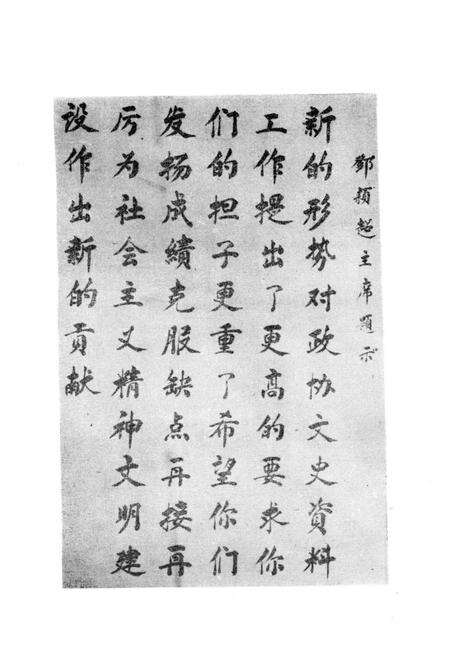 邓颖超主席题示
新的形势对政协文史资料
工作提出了更高的要求你
们的担子更重了希望你们
发扬成績克服缺点再接再
厉为社会主义精神文明建
设作出新的贡献